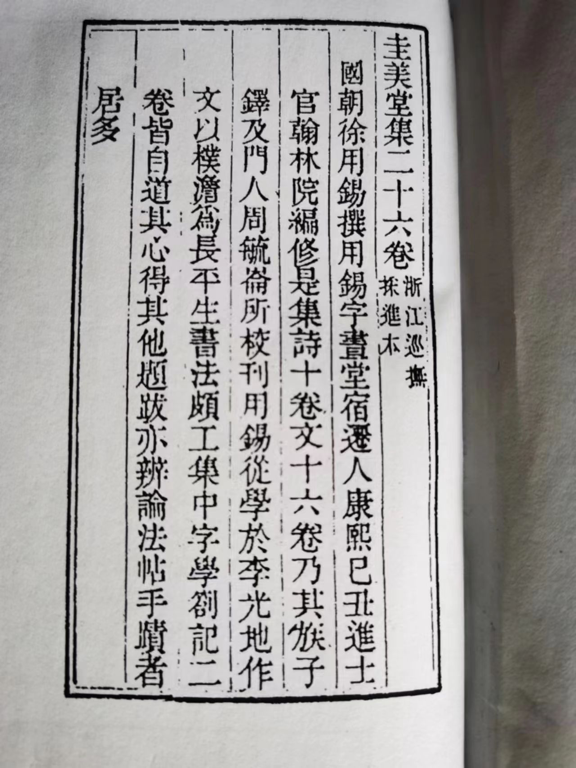 圭美堂集二十六卷浙江巡撫
採進本
國朝徐用錫撰用錫字晝堂宿遷人康熙己丑進士
官翰林院編修是集詩十卷文十六卷乃其族子
鐸及門人周毓崙所校刊用錫從學於李光地作
文以樸澹爲長平生書法頗工集中字學劄記二
卷皆自道其心得其他題跋亦辨論法帖手蹟者
居多